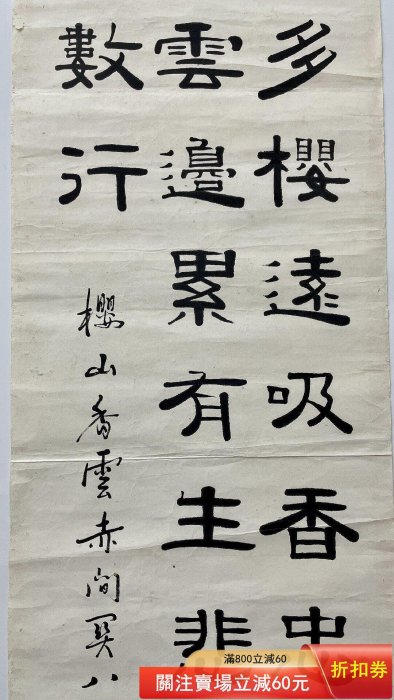 多櫻遠吸香
雲邊累有生
數行
櫻山香雲赤間関八
滿800立減60
關注賣場立減60元
折扣券